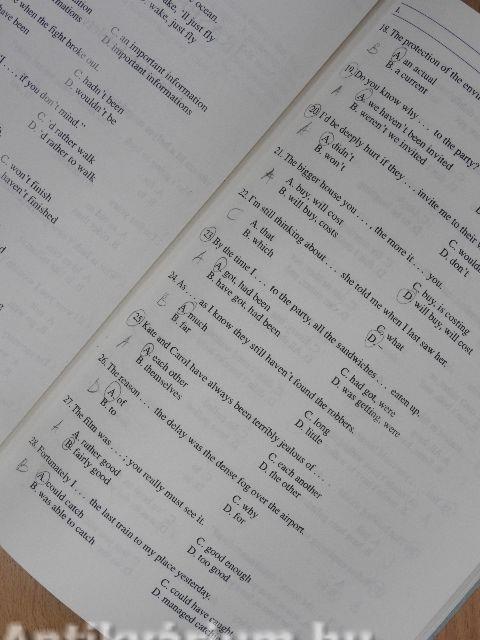 ocean.
wake, just fly
C. an important information
D. important informations
when the fight broke out.
have been
C. hadn't been
D. wouldn't be
if you don't mind."
C. 'd rather walk
D. 'd rather to walk
C. won't finish
haven't finished
1.
18. The protection of the
B
A. an actual
B. a current
19. Do you know why . . . to the party?
A
A. we haven't been invited
B. weren't we invited
20. I'd be deeply hurt if they . . . invite me to their
A
A. didn't
B. won't
C. would
D. don't
21. The bigger house you . . . , the more it . . . you.
A
A. buy, will cost
B. will buy, costs
C. buy, is costing
D. will buy, will cost
22. I'm still thinking about . . . she told me when I last saw her.
C
A. that
B. which
C. what
D. –
23. By the time I . . . to the party, all the sandwiches . . . eaten up.
A
A. got, had been
B. have got, had been
C. had got, were
D. was getting, were
24. As . . . as I know they still haven't found the robbers.
B
A. much
B. far
C. long
D. little
25. Kate and Carol have always been terribly jealous of . . .
A
A. each other
B. themselves
C. each another
D. the other
26. The reason . . . the delay was the dense fog over the airport.
D
A. of
B. to
C. why
D. for
27. The film was . . . ; you really must see it.
A
A. rather good
B. fairly good
C. good enough
D. too good
28. Fortunately I . . . the last train to my place yesterday.
B
A. could catch
B. was able to catch
C. could have caught
D. managed catch
Antikvárium.hu